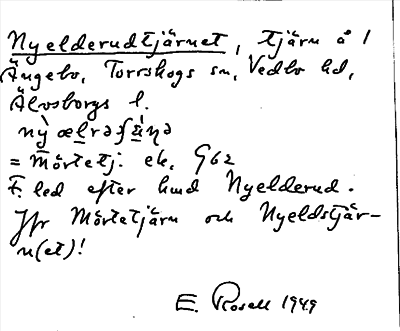 Nyelderudtjärnet, tjärn å 1
Ängebo, Torrskogs sn, Vedbo hd,
Älvsborgs l.
= Mörtetj. ek. G62
F. led efter hmd Nyelderud.
Jfr Mörtetjärn och Nyeldstjär-
n(et)!
E. Rosell 1949